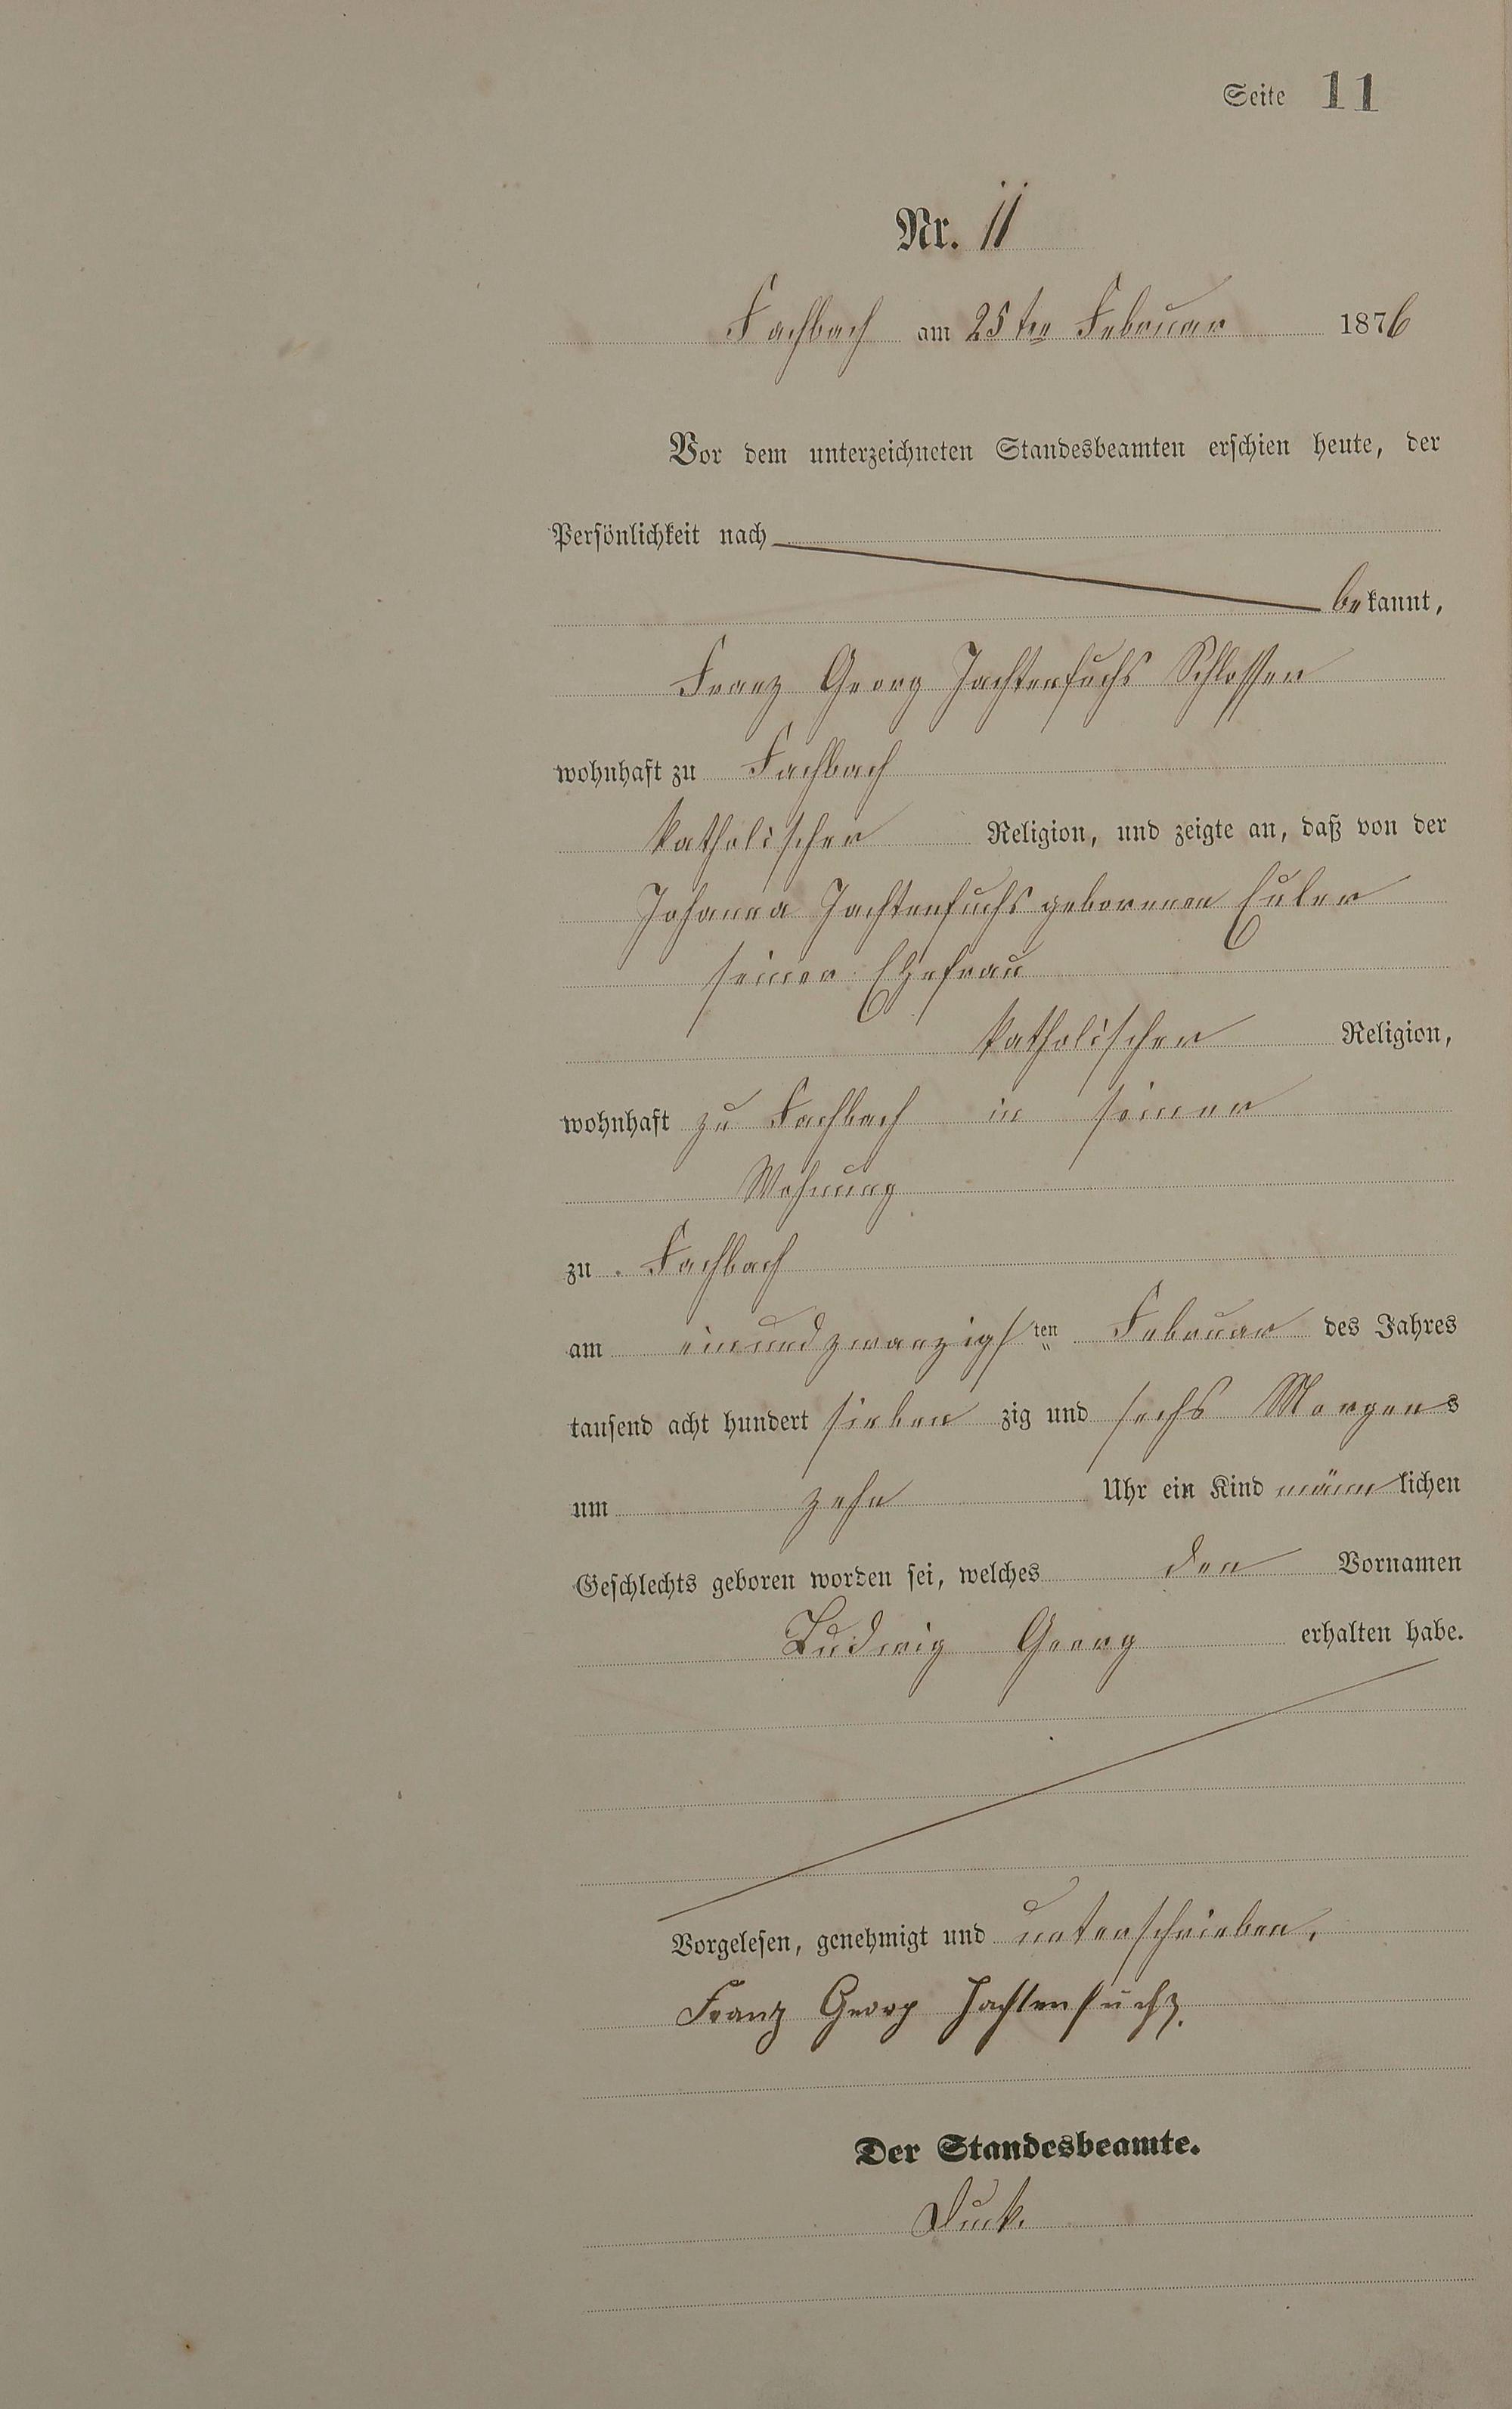 Seite 11
Nr. 11
Fachbach am 25ten Februar 1876
Vor dem unterzeichneten Standesbeamten erschien heute, der
Persönlichkeit nach
bekannt,
Franz Georg Jachtenfuchs Schlosser
wohnhaft zu Fachbach
katholischer Religion, und zeigte an, daß von der
Johanna Jachtenfuchs geborenen Euler
seiner Ehefrau
katholischer Religion,
wohnhaft zu Fachbach in seiner
Wohnung
zu Fachbach
am einundzwanzigsten Februar des Jahres
tausend acht hundert siebenzig und sechs Morgens
um zehn Uhr ein Kind männlichen
Geschlechts geboren worden sei, welches den Vornamen
Ludwig Georg erhalten habe.
Vorgelesen, genehmigt und unterschrieben,
Franz Georg Jachtenfuchs.
Der Standesbeamte.